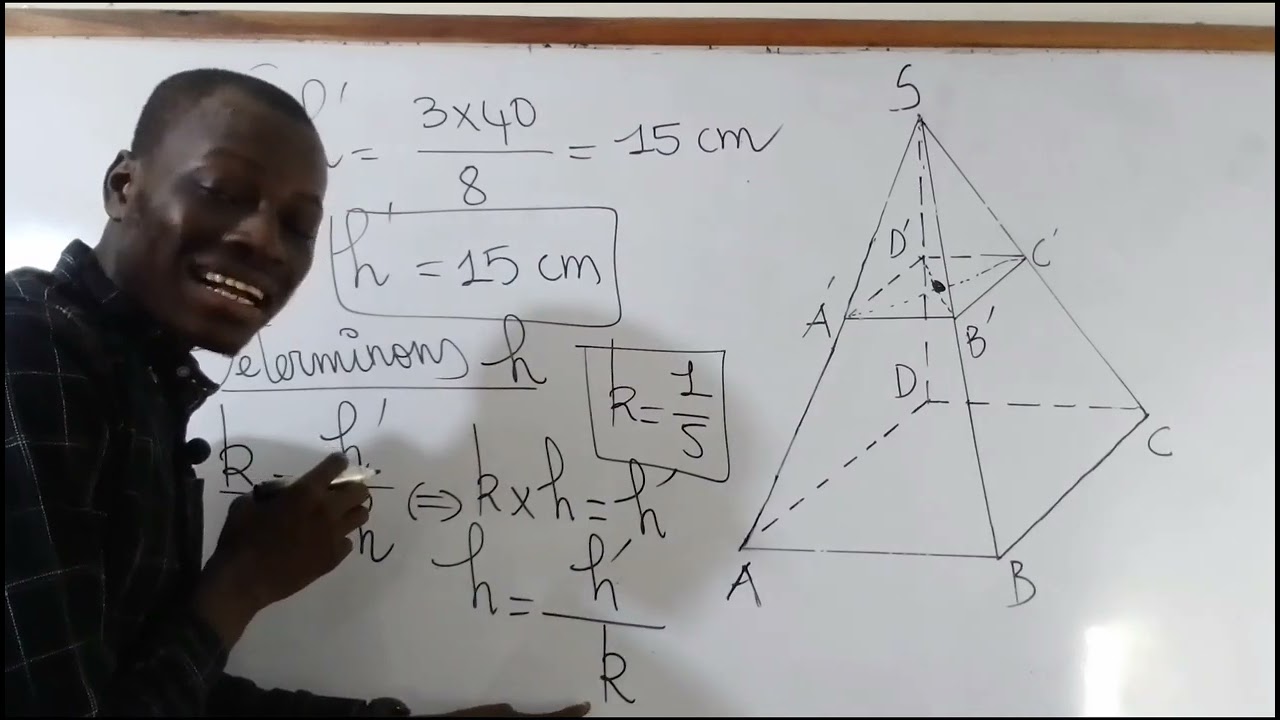 h' = 3x40 / 8 = 15 cm
h' = 15 cm
eterminons h
k = 1/5
k = h'/h ⇔ k x h = h'
h = h'/k
S
D'
C'
A'
B'
D
C
A
B